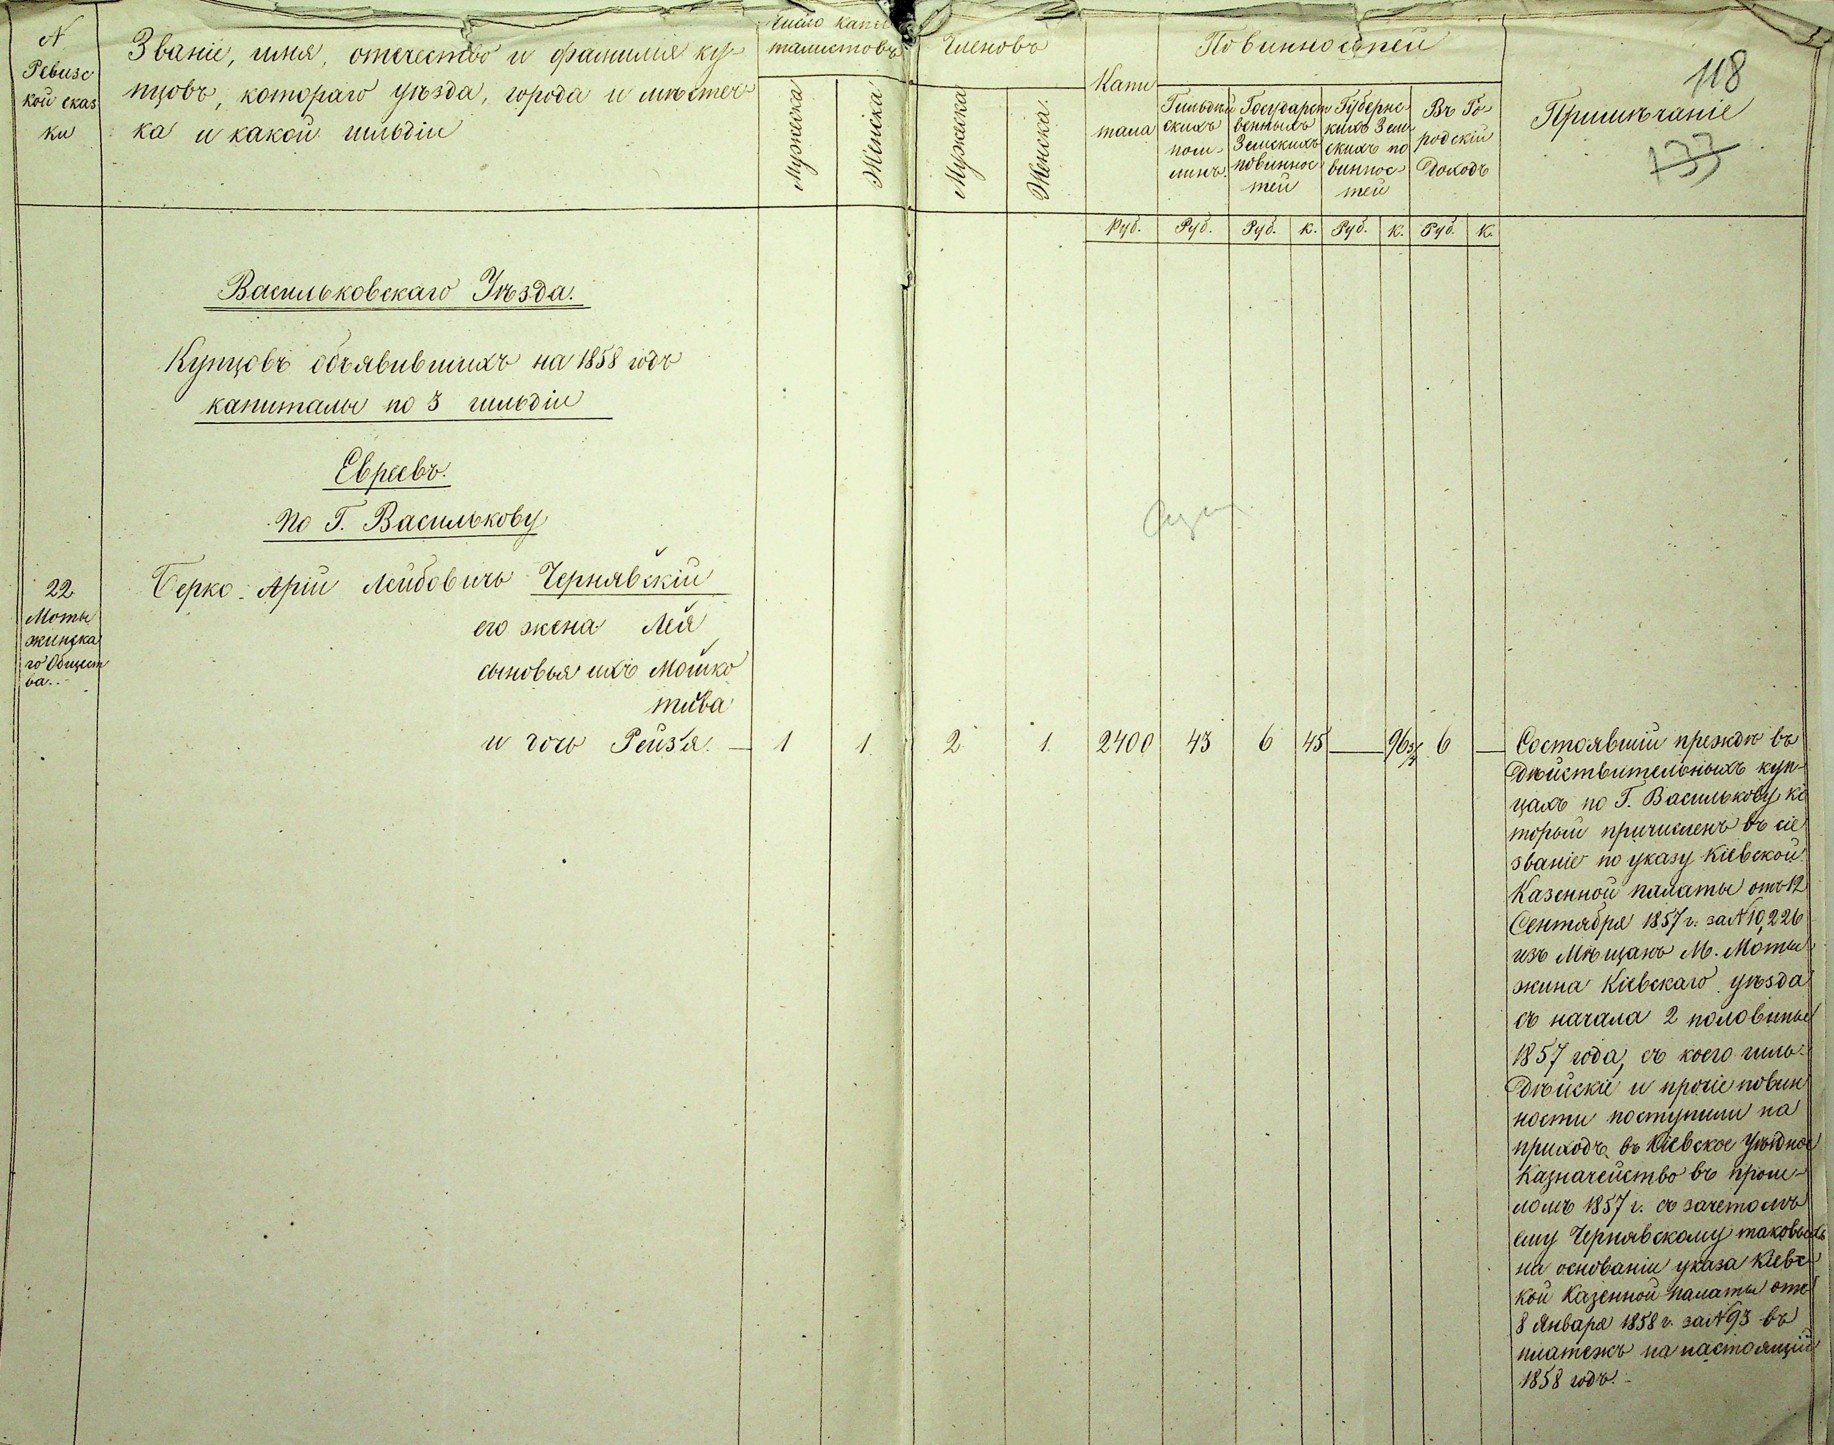 N
Ревизс
кой сказ
ки
Званіе, имя, отечество и фамилія ку-
пцовъ, котораго уѣзда, города и мѣстеч
ка и какой гильдіи
Число капи
талистовъ
Мужеска
Женска
Членовъ
Мужеска
Женска.
Капи
тала
Повинностей
Гильдѣй
скихъ
пош-
линъ.
Государст
венныхъ
Земскихъ
повиннос
тей
Губернс
кихъ Зем-
скихъ по
виннос
тей
Въ Го-
родскій
Доходъ
Примѣчаніе
118
133
Руб.
Руб.
Руб.
К.
Руб.
К.
Руб.
К.
Васильковскаго Уѣзда.
Купцовъ объявившихъ на 1858 годъ
капиталы по 3 гильдіи
Евреевъ.
По Г. Василькову
22
Моты
жинска
го Общест
ва..
Берко-Арій Лейбовичъ Чернявскій
его жена Лея
сыновья ихъ Мошко
тива
и дочь Рейзя. — 1 1 2 1. 2400 43 6 45 — 96 3/4 6 —
Состоявшій прежде въ
дѣйствительныхъ куп-
цахъ по Г. Василькову ко
торый причисленъ въ сіе
званіе по указу Кіевской
Казенной палаты отъ 12
Сентября 1857 г. за N 10,226
изъ Мѣщанъ М. Моты
жина Кіевскаго уѣзда
съ начала 2 половины
1857 года, съ коего гиль-
дѣйскіе и прочіе повин
ности поступили на
приходъ въ Кіевское Уѣздное
Казначейство въ прош-
ломъ 1857 г. съ зачетомъ
ему Чернявскому таковыхъ
на основаніи указа Кіевс-
кой Казенной палаты отъ
8 Января 1858 г. за N 93 въ
платежъ на настоящій
1858 годъ.-